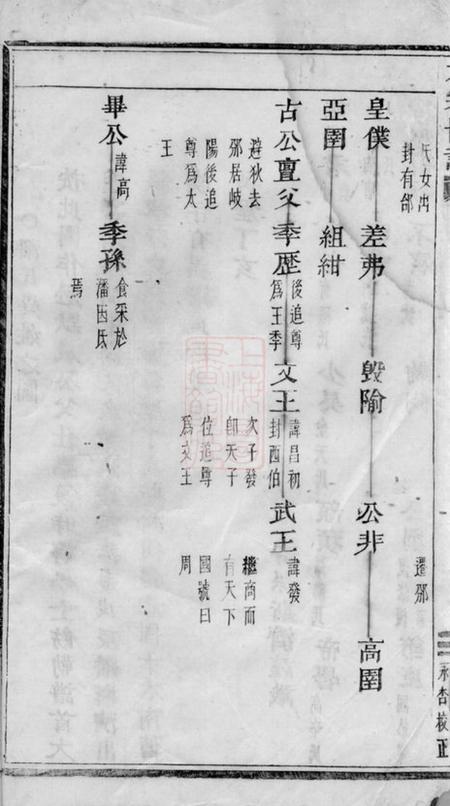 氏女出
封有邰
遷邠
皇僕 差弗 毀隃 公非 高圉
亞圉 組紺
古公亶父 季歷 後追尊為王季 文王 諱昌初封西伯 武王 諱發
避狄去 次子發 繼商而
邠居岐 即天子 有天下
陽後追 位追尊 國號曰
尊為太 為文王 周
王
畢公 諱高 季孫 食采於潘因氏
焉
永杏校正